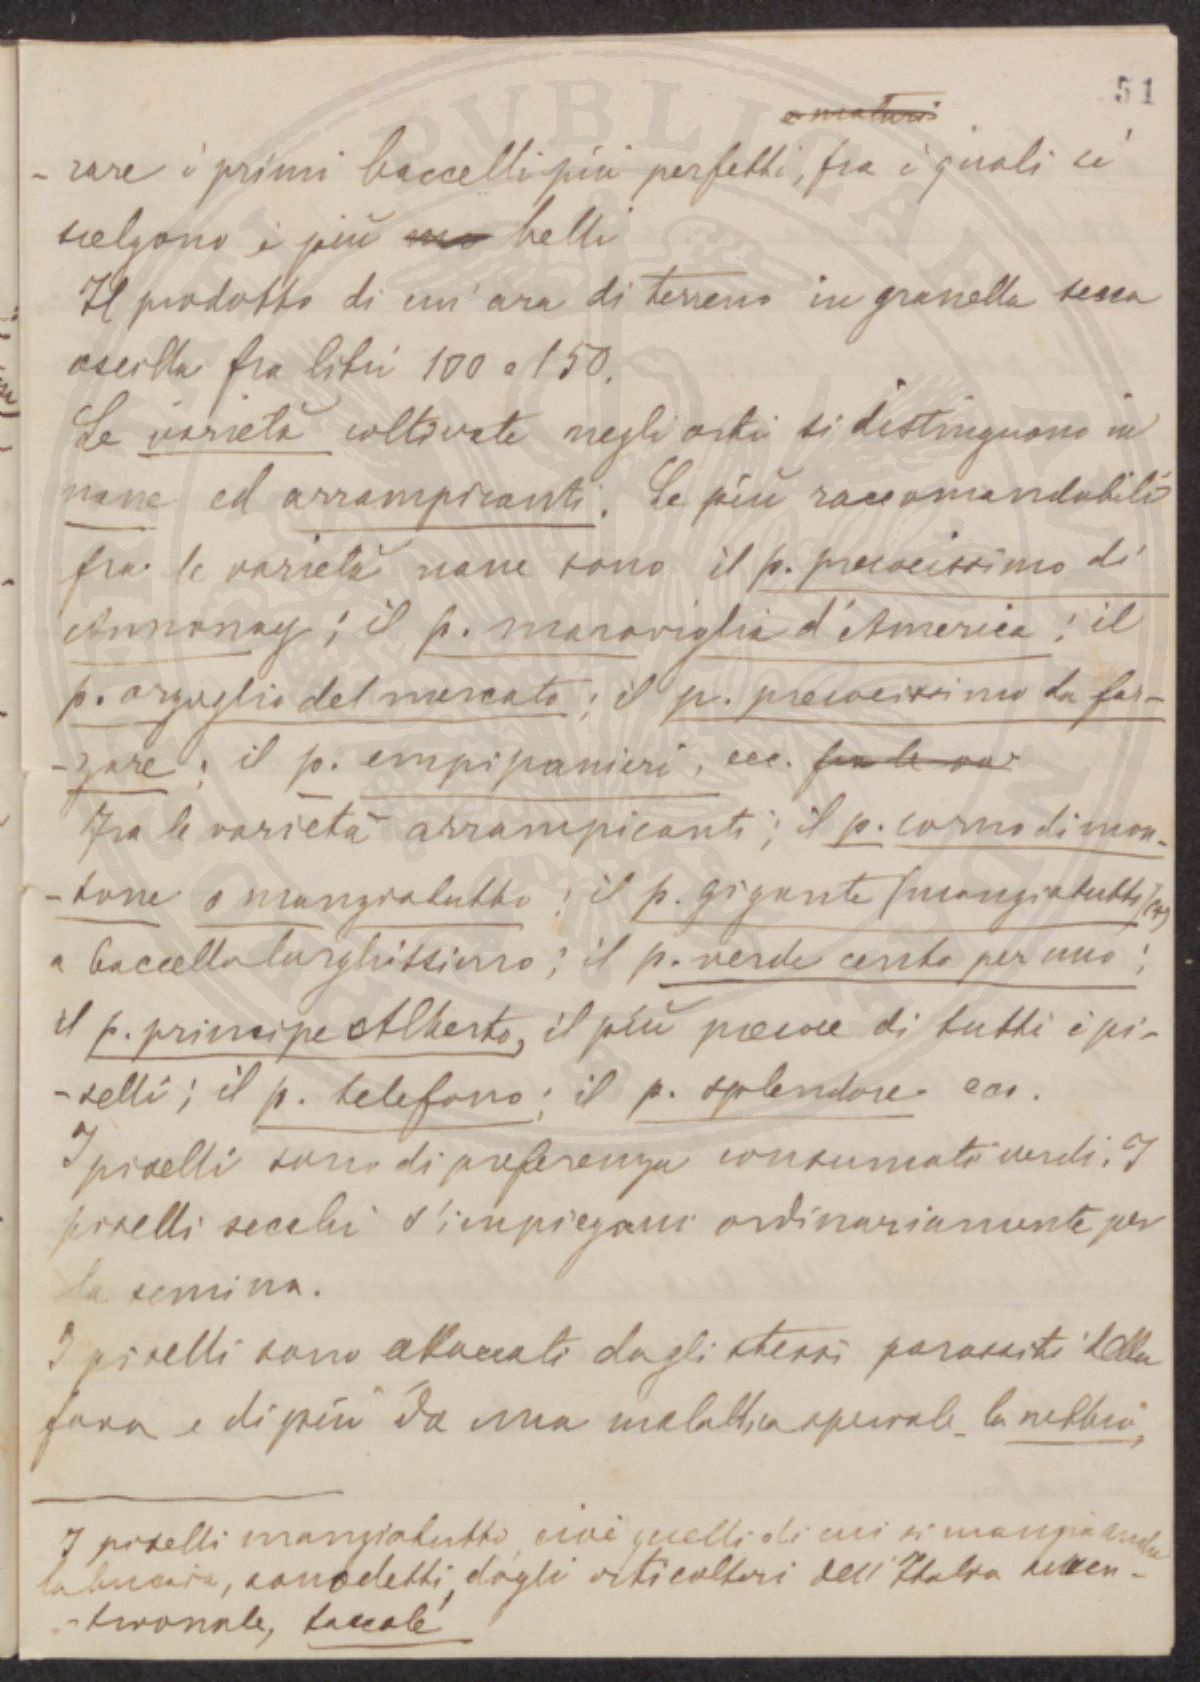 51
e maturi
- rare i primi baccelli più perfetti, fra i quali si
scelgono i più mo belli
Il prodotto di un'ara di terreno in granella secca
oscilla fra litri 100 e 150.
Le varietà coltivate negli orti si distinguono in
nane ed arrampicanti. Le più raccomandabili
fra le varietà nane sono il p. precocissimo di
Annonay; il p. maraviglia d'America; il
p. orgoglio del mercato; il p. precocissimo da for-
-zare; il p. empipanieri, ecc. fra le va
Fra le varietà arrampicanti; il p. corno di mon-
-tone o mangiatutto; il p. gigante (mangiatutto)
a baccello larghissimo; il p. verde cento per uno;
il p. principe Alberto, il più precoce di tutti i pi-
-selli; il p. telefono; il p. splendore ecc.
I piselli sono di preferenza consumati verdi. I
piselli secchi s'impiegano ordinariamente per
la semina.
I piselli sono attaccati dagli stessi parassiti della
fava e di più da una malattia speciale la nebbia,
I piselli mangiatutto, cioè quelli di cui si mangia anche
la buccia, sono detti, dagli orticoltori dell'Italia setten-
-trionale, taccole
PUBLICAE